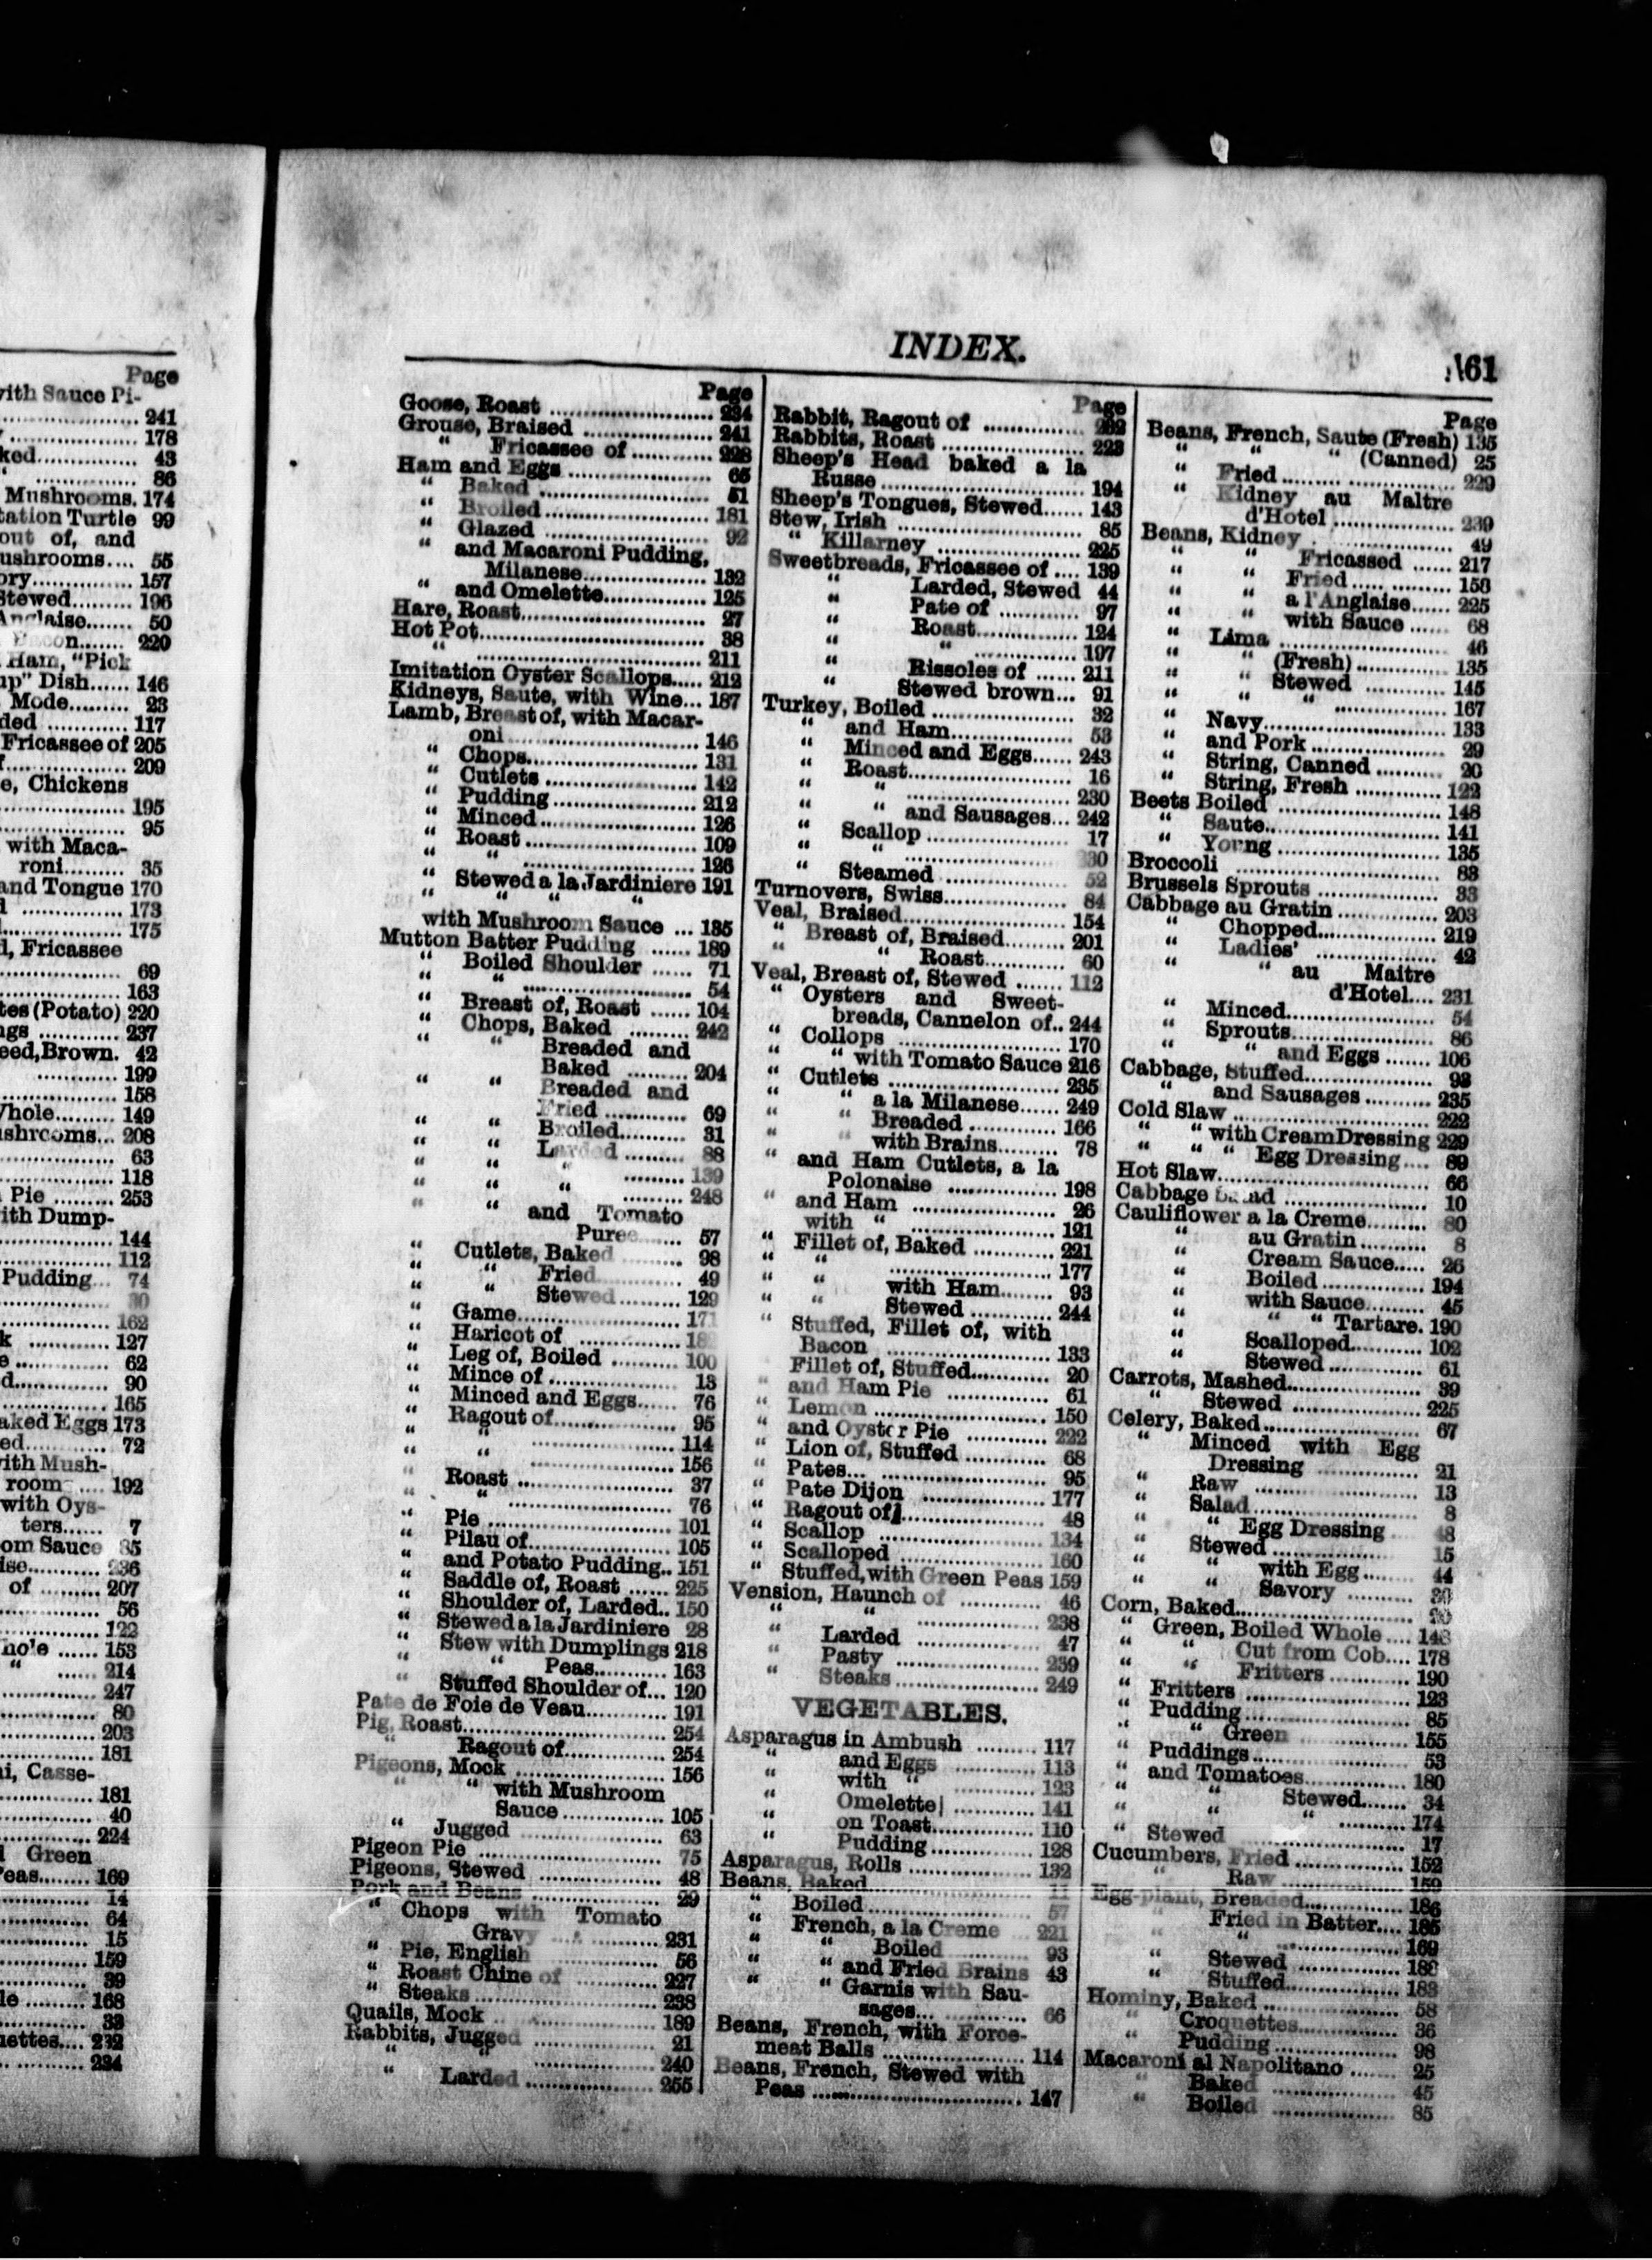 Page
with Sauce Pi-
241
178
ked 43
86
Mushrooms. 174
tation Turtle 99
out of, and
ushrooms.... 55
ory 157
Stewed 196
Anglaise 50
Bacon 220
Ham, "Pick
up" Dish 146
Mode 23
ded 117
Fricassee of 205
209
e, Chickens
195
95
with Maca-
roni 35
and Tongue 170
173
175
d, Fricassee
69
163
tes (Potato) 220
ngs 237
eed, Brown. 42
199
158
Whole 149
ushrooms... 208
63
118
Pie 253
with Dump-
144
112
Pudding 74
162
k 127
62
d 90
165
aked Eggs 173
ed 72
with Mush-
room 192
with Oys-
ters 7
om Sauce
of 207
56
122
153
" 214
247
80
203
181
ni, Casse-
181
40
224
Green
Peas 169
14
64
15
159
39
168
33
uettes.... 232
234
INDEX.
61
Page
Goose, Roast 234
Grouse, Braised 241
" Fricassee of 228
Ham and Eggs 65
" Baked 51
" Broiled 181
" Glazed 92
" and Macaroni Pudding,
Milanese 132
" and Omelette 125
Hare, Roast 27
Hot Pot 38
" 211
Imitation Oyster Scallops 212
Kidneys, Saute, with Wine... 187
Lamb, Breast of, with Macar-
oni 146
" Chops 131
" Cutlets 142
" Pudding 212
" Minced 126
" Roast 109
" " 126
" Stewed a la Jardiniere 191
" " "
with Mushroom Sauce ... 185
Mutton Batter Pudding 189
" Boiled Shoulder 71
" " 54
" Breast of, Roast 104
" Chops, Baked 242
" " Breaded and
Baked 204
" " Breaded and
Fried 69
" " Broiled 31
" " Larded 88
" " " 139
" " " 248
" " and Tomato
Puree 57
" Cutlets, Baked 98
" " Fried 49
" " Stewed 129
" Game 171
" Haricot of
" Leg of, Boiled 100
" Mince of 13
" Minced and Eggs 76
" Ragout of 95
" " 114
" " 156
" Roast 37
" " 76
" Pie 101
" Pilau of 105
" and Potato Pudding.. 151
" Saddle of, Roast 225
" Shoulder of, Larded.. 150
" Stewed a la Jardiniere 28
" Stew with Dumplings 218
" " Peas 163
" Stuffed Shoulder of... 120
Pate de Foie de Veau 191
Pig, Roast 254
" Ragout of 254
Pigeons, Mock 156
" " with Mushroom
Sauce 105
" Jugged 63
Pigeon Pie 75
Pigeons, Stewed 48
Pork and Beans 29
" Chops with Tomato
Gravy 231
" Pie, English 56
" Roast Chine of 227
" Steaks 238
Quails, Mock 189
Rabbits, Jugged 21
" " 240
" Larded 255
Page
Rabbit, Ragout of
Rabbits, Roast 223
Sheep's Head baked a la
Russe 194
Sheep's Tongues, Stewed 143
Stew, Irish 85
" Killarney 225
Sweetbreads, Fricassee of .... 139
" Larded, Stewed 44
" Pate of 97
" Roast 124
" " 197
" Rissoles of 211
" Stewed brown... 91
Turkey, Boiled 32
" and Ham 53
" Minced and Eggs 243
" Roast 16
" " 230
" " and Sausages... 242
" Scallop 17
" "
" Steamed 52
Turnovers, Swiss 84
Veal, Braised 154
" Breast of, Braised 201
" " Roast 60
Veal, Breast of, Stewed 112
" Oysters and Sweet-
breads, Cannelon of.. 244
" Collops 170
" " with Tomato Sauce 216
" Cutlets 235
" " a la Milanese 249
" " Breaded 166
" " with Brains 78
" and Ham Cutlets, a la
Polonaise 198
" and Ham 26
with " 121
" Fillet of, Baked 221
" " 177
" " with Ham 93
" " Stewed 244
" Stuffed, Fillet of, with
Bacon 133
Fillet of, Stuffed 20
" and Ham Pie 61
" Lemon 150
" and Oyster Pie 222
" Lion of, Stuffed 68
" Pates 95
" Pate Dijon 177
" Ragout of 48
" Scallop 134
" Scalloped 160
" Stuffed, with Green Peas 159
Vension, Haunch of 46
" " 238
" Larded 47
" Pasty 239
" Steaks 249
VEGETABLES.
Asparagus in Ambush 117
" and Eggs 113
" with " 123
" Omelette 141
" on Toast 110
" Pudding 128
Asparagus, Rolls 132
Beans, Baked 11
" Boiled 57
" French, a la Creme 221
" " Boiled 93
" " and Fried Brains 43
" " Garnis with Sau-
sages 66
Beans, French, with Force-
meat Balls 114
Beans, French, Stewed with
Peas 147
Page
Beans, French, Saute (Fresh) 135
" " " (Canned) 25
" Fried 229
" Kidney au Maitre
d'Hotel 239
Beans, Kidney 49
" " Fricassed 217
" " Fried 156
" " a l'Anglaise 225
" " with Sauce 68
" Lima 46
" " (Fresh) 135
" " Stewed 145
" " " 167
" Navy 133
" and Pork 29
" String, Canned 20
" String, Fresh 122
Beets Boiled 148
" Saute 141
" Young 135
Broccoli 83
Brussels Sprouts 33
Cabbage au Gratin 203
" Chopped 219
" Ladies' 42
" " au Maitre
d'Hotel.... 231
" Minced 54
" Sprouts 86
" " and Eggs 106
Cabbage, Stuffed
" and Sausages 235
Cold Slaw 222
" " with Cream Dressing 229
" " " Egg Dressing.... 89
Hot Slaw 66
Cabbage Salad 10
Cauliflower a la Creme 80
" au Gratin 8
" Cream Sauce 26
" Boiled 194
" with Sauce 45
" " " Tartare. 190
" Scalloped 102
" Stewed 61
Carrots, Mashed 39
" Stewed 225
Celery, Baked 67
" Minced with Egg
Dressing 21
" Raw 13
" Salad 8
" " Egg Dressing 48
" Stewed 15
" " with Egg 44
" " Savory
Corn, Baked
" Green, Boiled Whole
" " Cut from Cob.... 178
" " Fritters 190
" Fritters 123
" Pudding 85
" " Green 155
" Puddings 53
" and Tomatoes 180
" " Stewed 34
" " " 174
" Stewed 17
Cucumbers, Fried 152
" Raw 159
Egg-plant, Breaded 186
" Fried in Batter.... 185
" " 169
" Stewed
" Stuffed 183
Hominy, Baked 58
" Croquettes 36
" Pudding 98
Macaroni al Napolitano 25
" Baked 45
" Boiled 85